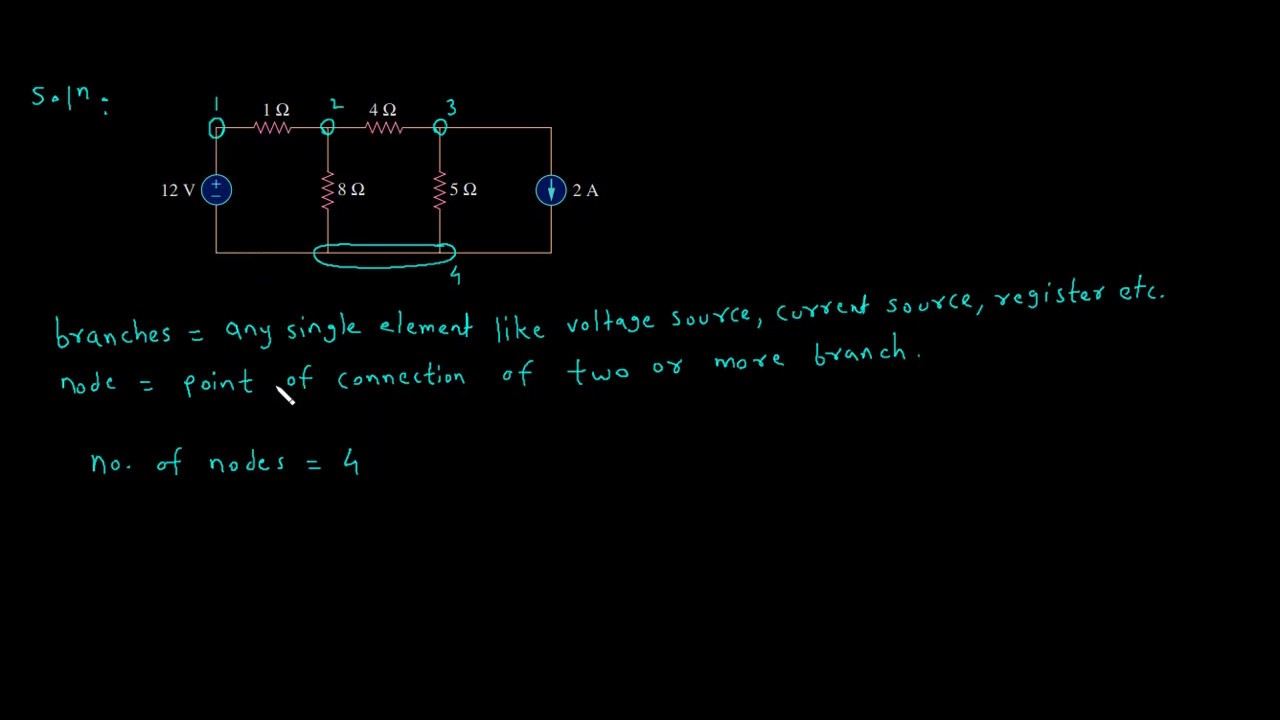 Soln:
1 1 Ω 2 4 Ω 3
12 V + − 8 Ω 5 Ω 2 A
4
branches = any single element like voltage source, current source, register etc.
node = point of connection of two or more branch.
no. of nodes = 4